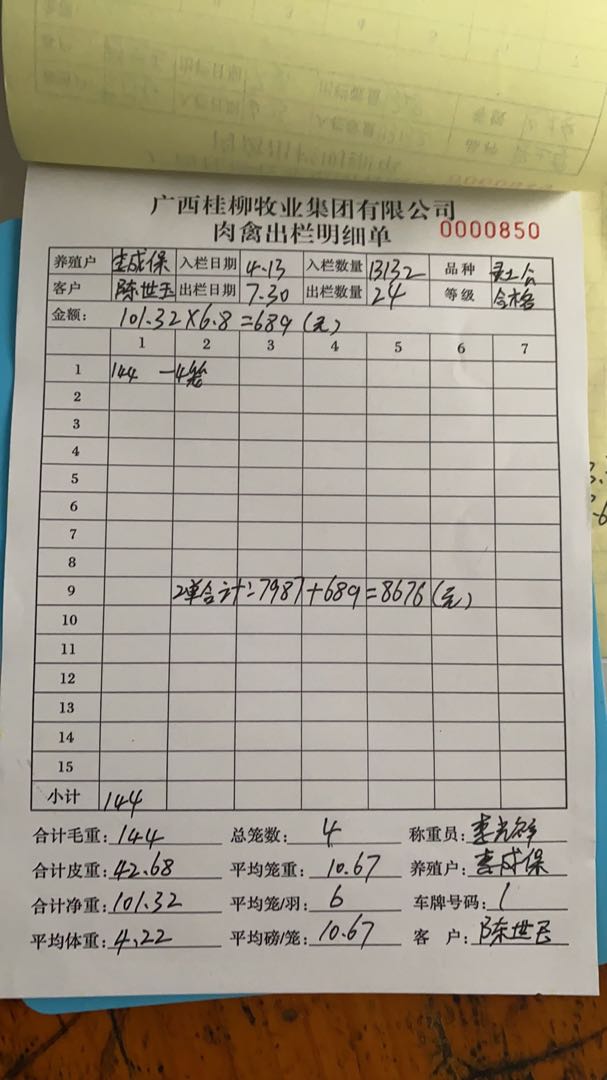 广西桂柳牧业集团有限公司
肉禽出栏明细单 0000850
养殖户 李成保 入栏日期 4.13 入栏数量 13132 品种
客户 陈世玉 出栏日期 7.30 出栏数量 24 等级 合格
金额: 101.32×6.8=689(元)
1 2 3 4 5 6 7
1 144 一4笼
2
3
4
5
6
7
8
9 2单合计:7987+689=8676(元)
10
11
12
13
14
15
小计 144
合计毛重: 144 总笼数: 4 称重员:
合计皮重: 42.68 平均笼重: 10.67 养殖户: 李成保
合计净重: 101.32 平均笼/羽: 6 车牌号码: 1
平均体重: 4.22 平均磅/笼: 10.67 客 户: 陈世玉